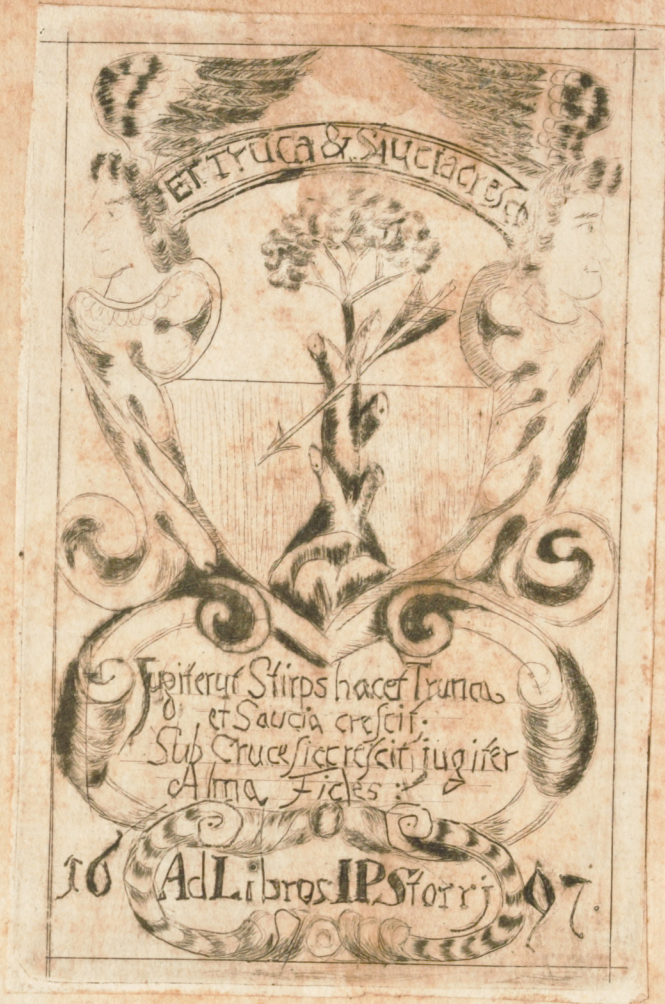 Et Truca & Siucia cresco
Jugiter ut Stirps hacet Trunca
et Saucia crescit.
Sub Cruce sic crescit, iugiter
Alma Fides :
16 Ad Libros IP Storrj 97.